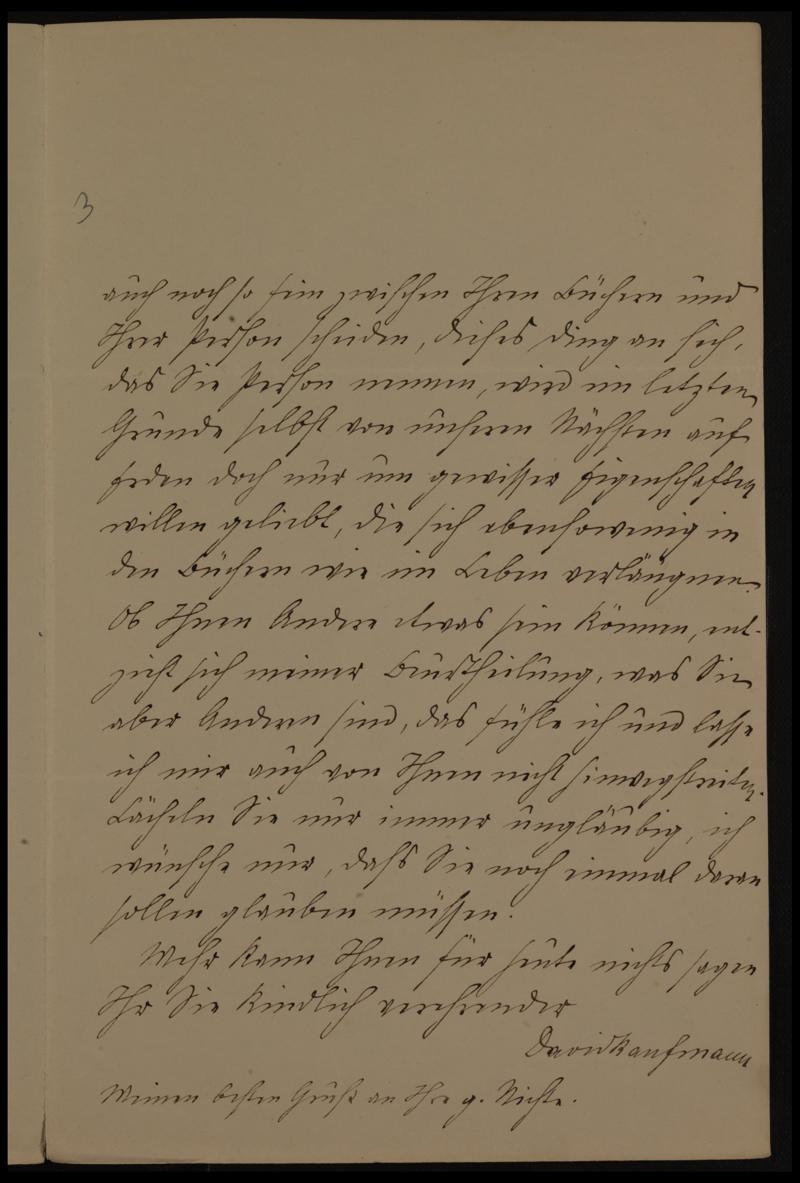 3
auch noch so fein zwischen Ihren Büchern und
Ihrer Person scheiden, dieses Ding an sich,
das Sie Person nennen, wird im letzten
Grunde selbst von unseren Nächsten auf
Erden doch nur um gewisser Eigenschaften
willen geliebt, die sich ebensowenig in
den Büchern wie im Leben verläugnen.
Ob Ihnen Andere etwas sein können, ent-
zieht sich meiner Beurtheilung, was Sie
aber Andern sind, das fühle ich und lasse
ich mir auch von Ihnen nicht hinwegstreiten.
Lächeln Sie nur immer ungläubig, ich
wünsche nur, daß Sie noch einmal daran
sollen glauben müssen.
Mehr kann Ihnen für heute nichts sagen
Ihr Sie kindlich verehrender
David Kaufmann
Meinen besten Gruß an Ihre g. Nichte.